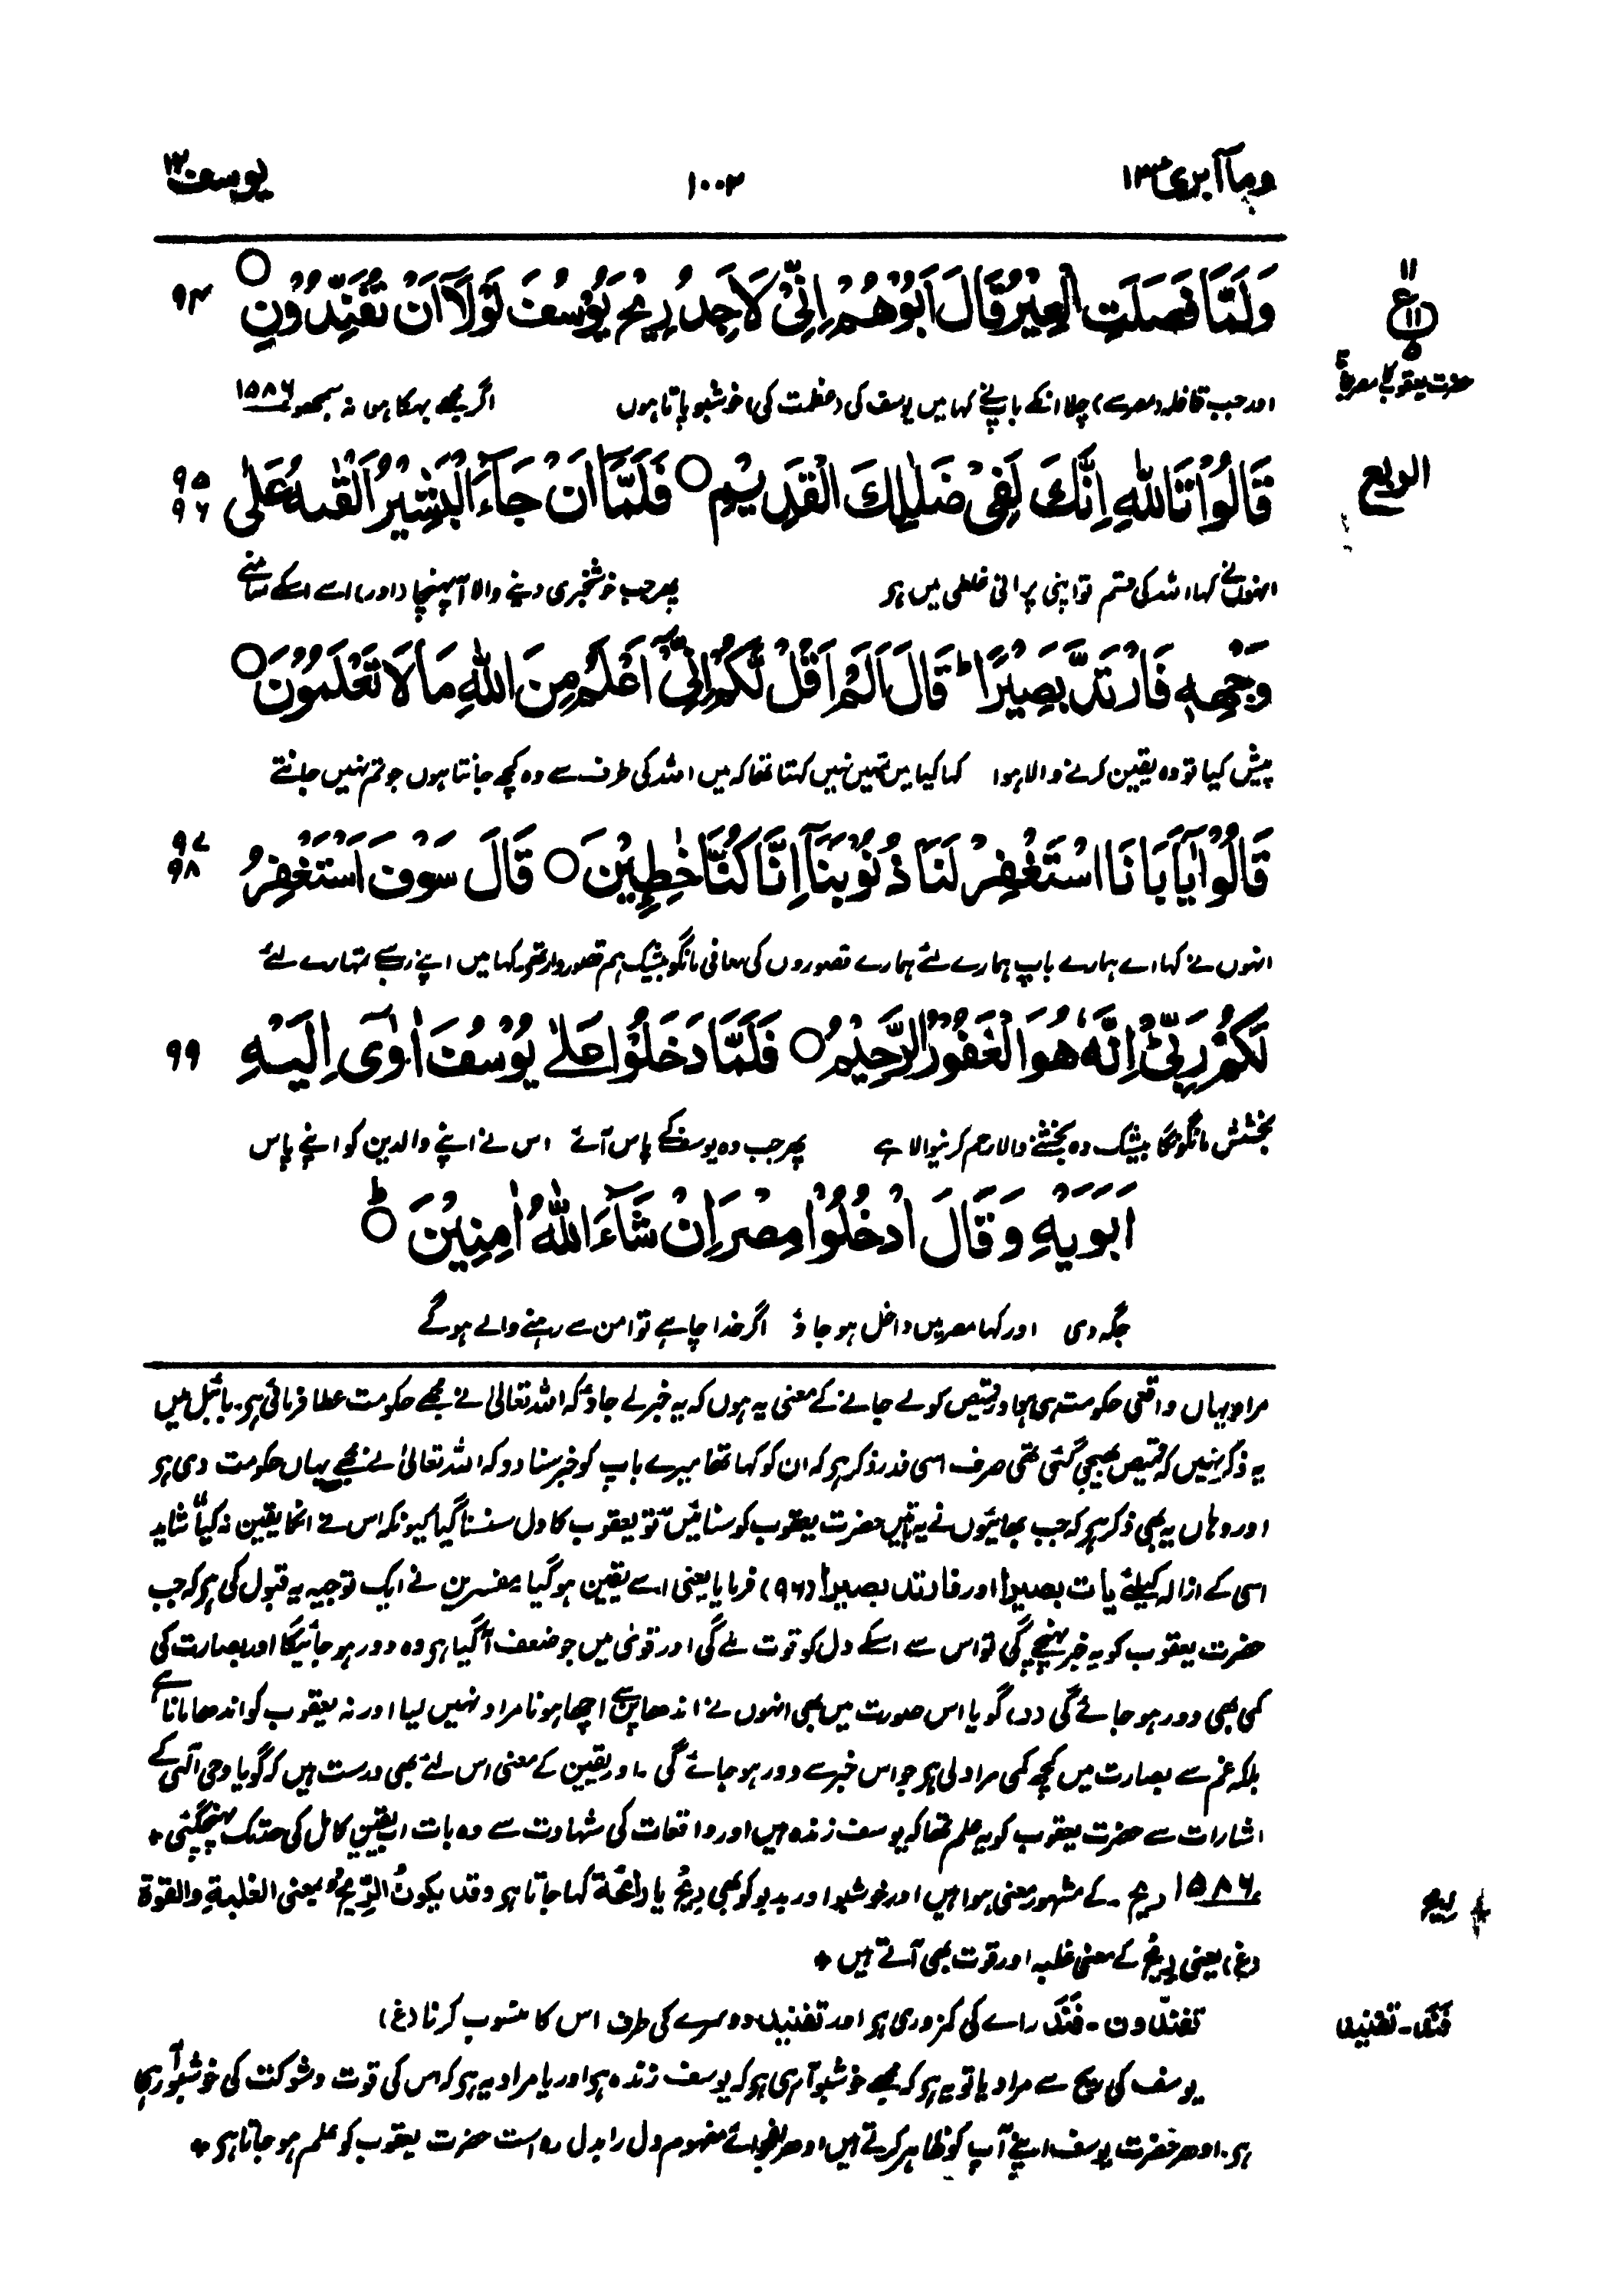 ومآ ابرئ ١٣ ١٠٠٢ یوسف ١٢
١١
ع
١١
٥
حضرت یعقوب کا مصر جانا
وَلَمَّا فَصَلَتِ الْعِيْرُ قَالَ اَبُوْهُمْ اِنِّيْ لَاَجِدُ رِيْحَ يُوْسُفَ لَوْلَآ اَنْ تُفَنِّدُوْنِ ○ ٩٤
اور جب قافلہ (مصر سے) چلا انکے باپ نے کہا میں یوسف کی (عظمت کی) خوشبو پاتا ہوں اگر مجھے بہکا ہوا نہ سمجھو ١٥٨٦
الربع
قَالُوْا تَاللّٰهِ اِنَّكَ لَفِيْ ضَلٰلِكَ الْقَدِيْمِ ○ فَلَمَّآ اَنْ جَآءَ الْبَشِيْرُ اَلْقٰىهُ عَلٰى ٩٥ ٩٦
انہوں نے کہا اللہ کی قسم تو اپنی پرانی غلطی میں ہو پھر جب خوشخبری دینے والا آپہنچا (اور) اسے اسکے سامنے
وَجْهِهٖ فَارْتَدَّ بَصِيْرًا ۚ قَالَ اَلَمْ اَقُلْ لَّكُمْ اِنِّيْٓ اَعْلَمُ مِنَ اللّٰهِ مَا لَا تَعْلَمُوْنَ ○
پیش کیا تو وہ یقین کرنے والا ہوا کہا کیا میں تمہیں نہیں کہتا تھا کہ میں اللہ کی طرف سے وہ کچھ جانتا ہوں جو تم نہیں جانتے
قَالُوْا يٰٓاَبَانَا اسْتَغْفِرْ لَنَا ذُنُوْبَنَآ اِنَّا كُنَّا خٰطِـِٕيْنَ ○ قَالَ سَوْفَ اَسْتَغْفِرُ ٩٧ ٩٨
انہوں نے کہا اے ہمارے باپ ہمارے لئے ہمارے قصوروں کی معافی مانگو بیشک ہم قصوروار تھے کہا میں اپنے رب سے تمہارے لئے
لَكُمْ رَبِّيْ ۭ اِنَّهٗ هُوَ الْغَفُوْرُ الرَّحِيْمُ ○ فَلَمَّا دَخَلُوْا عَلٰى يُوْسُفَ اٰوٰٓى اِلَيْهِ ٩٩
بخشش مانگونگا بیشک وہ بخشنے والا رحم کرنیوالا ہے پھر جب وہ یوسف کے پاس آئے اس نے اپنے والدین کو اپنے پاس
اَبَوَيْهِ وَقَالَ ادْخُلُوْا مِصْرَ اِنْ شَآءَ اللّٰهُ اٰمِنِيْنَ ○ ۭ
جگہ دی اور کہا مصر میں داخل ہو جاؤ اگر خدا چاہے تو امن سے رہنے والے ہو گے
مراد یہاں واقعی حکومت ہی ہو اور قمیص کو لے جانے کے معنی یہ ہوں کہ یہ خبر لے جاؤ کہ اللہ تعالیٰ نے مجھے حکومت عطا فرمائی ہو۔ بائبل میں
یہ ذکر نہیں کہ قمیص بھیجی گئی تھی صرف اسی قدر ذکر ہو کہ ان کو کہا تھا میرے باپ کو خبر سنا دو کہ اللہ تعالیٰ نے مجھے یہاں حکومت دی ہو
اور وہاں یہ بھی ذکر ہو کہ جب بھائیوں نے یہ باتیں حضرت یعقوب کو سنائیں "تو یعقوب کا دل سنسنا گیا کیونکہ اس نے انکا یقین نہ کیا" شاید
اسی کے ازالہ کیلئے یات بصیرا اور فارتد بصیرا (٩٦) فرمایا یعنی اسے یقین ہو گیا مفسرین نے ایک توجیہ یہ قبول کی ہو کہ جب
حضرت یعقوب کو یہ خبر پہنچے گی تو اس سے اسکے دل کو قوت ملے گی اور قویٰ میں جو ضعف آگیا ہو وہ دور ہو جائیگا اور بصارت کی
کمی بھی دور ہو جائے گی (د) گویا اس صورت میں بھی انہوں نے اندھا پن سے اچھا ہونا مراد نہیں لیا اور نہ یعقوب کو اندھا مانا ہے
بلکہ غم سے بصارت میں کچھ کمی مراد لی ہو جو اس خبر سے دور ہو جائے گی۔ اور یقین کے معنی اس لئے بھی درست ہیں کہ گویا وحی الٰہی کے
اشارات سے حضرت یعقوب کو یہ علم تھا کہ یوسف زندہ ہیں اور واقعات کی شہادت سے وہ بات اب یقین کامل کی حد تک پہنچ گئی *
١٥٨٦ ریح۔ کے مشہور معنی ہوا ہیں اور خوشبو اور بدبو کو بھی ریح یا رائحة کہا جاتا ہو وقد يكونُ الرِّيحُ بمعنی الغلبةِ والقوة
ریح
(غ) یعنی رِیْح کے معنی غلبہ اور قوت بھی آتے ہیں *
تفندون۔ فَنَد رائے کی کمزوری ہو اور تفنید دوسرے کی طرف اس کا منسوب کرنا (غ)
فَنَد۔ تفنید
یوسف کی ریح سے مراد یا تو یہ ہو کہ مجھے خوشبو آرہی ہو کہ یوسف زندہ ہو اور یا مراد یہ ہو کہ اس کی قوت و شوکت کی خوشبو آرہی
ہو۔ ادھر حضرت یوسف اپنے آپ کو ظاہر کرتے ہیں ادھر بفحوائے مفہوم دل را بدل رہ است حضرت یعقوب کو علم ہو جاتا ہو *